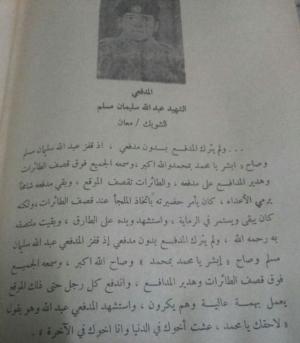 المدفعي
الشهيد عبد الله سليمان مسلم
الشوبك / معان
. . . ولم يترك المدفع بدون مدفعي ، اذ قفز عبد الله سليمان مسلم
وصاح « ابشر يا محمد بمحمد والله اكبر ، وسمعه الجميع فوق قصف الطائرات
وهدير المدافع على مدفعه ، والطائرات تقصف الموقع ، وبقي مدفعه شامخاً
يرمي الأعداء ، كان يأمر حضيرته باتخاذ الملجأ عند قصف الطائرات ، ولكنه
كان يبقى ويستمر في الرماية ، واستشهد ويده على الطارق ، وبقيت ملتصقه
به رحمه الله . ولم يترك المدفع بدون مدفعي إذ قفز المدفعي عبد الله سليمان
مسلم وصاح « إبشر يا محمد بمحمد » وصاح الله اكبر ، وسمعه الجميع
فوق قصف الطائرات وهدير المدافع ، واندفع كل رجل حتى فذلك الموقع
يعمل بهمة عالية وهم يكبرون ، واستشهد المدفعي عبد الله وهو يقول
« لاحقك يا محمد ، عشت أخوك في الدنيا وانا اخوك في الآخرة » .